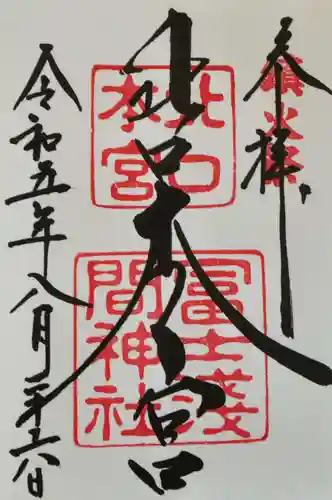 鎮火祭
参拝
北口本宮
北口
本宮
冨士浅
間神社
令和五年八月二十六日